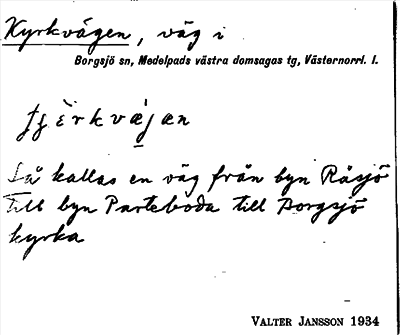 Kyrkvägen, väg i
Borgsjö sn, Medelpads västra domsagas tg, Västernorrl. l.
Så kallas en väg från byn Råsjö
till byn Parteboda till Borgsjö
kyrka
VALTER JANSSON 1934